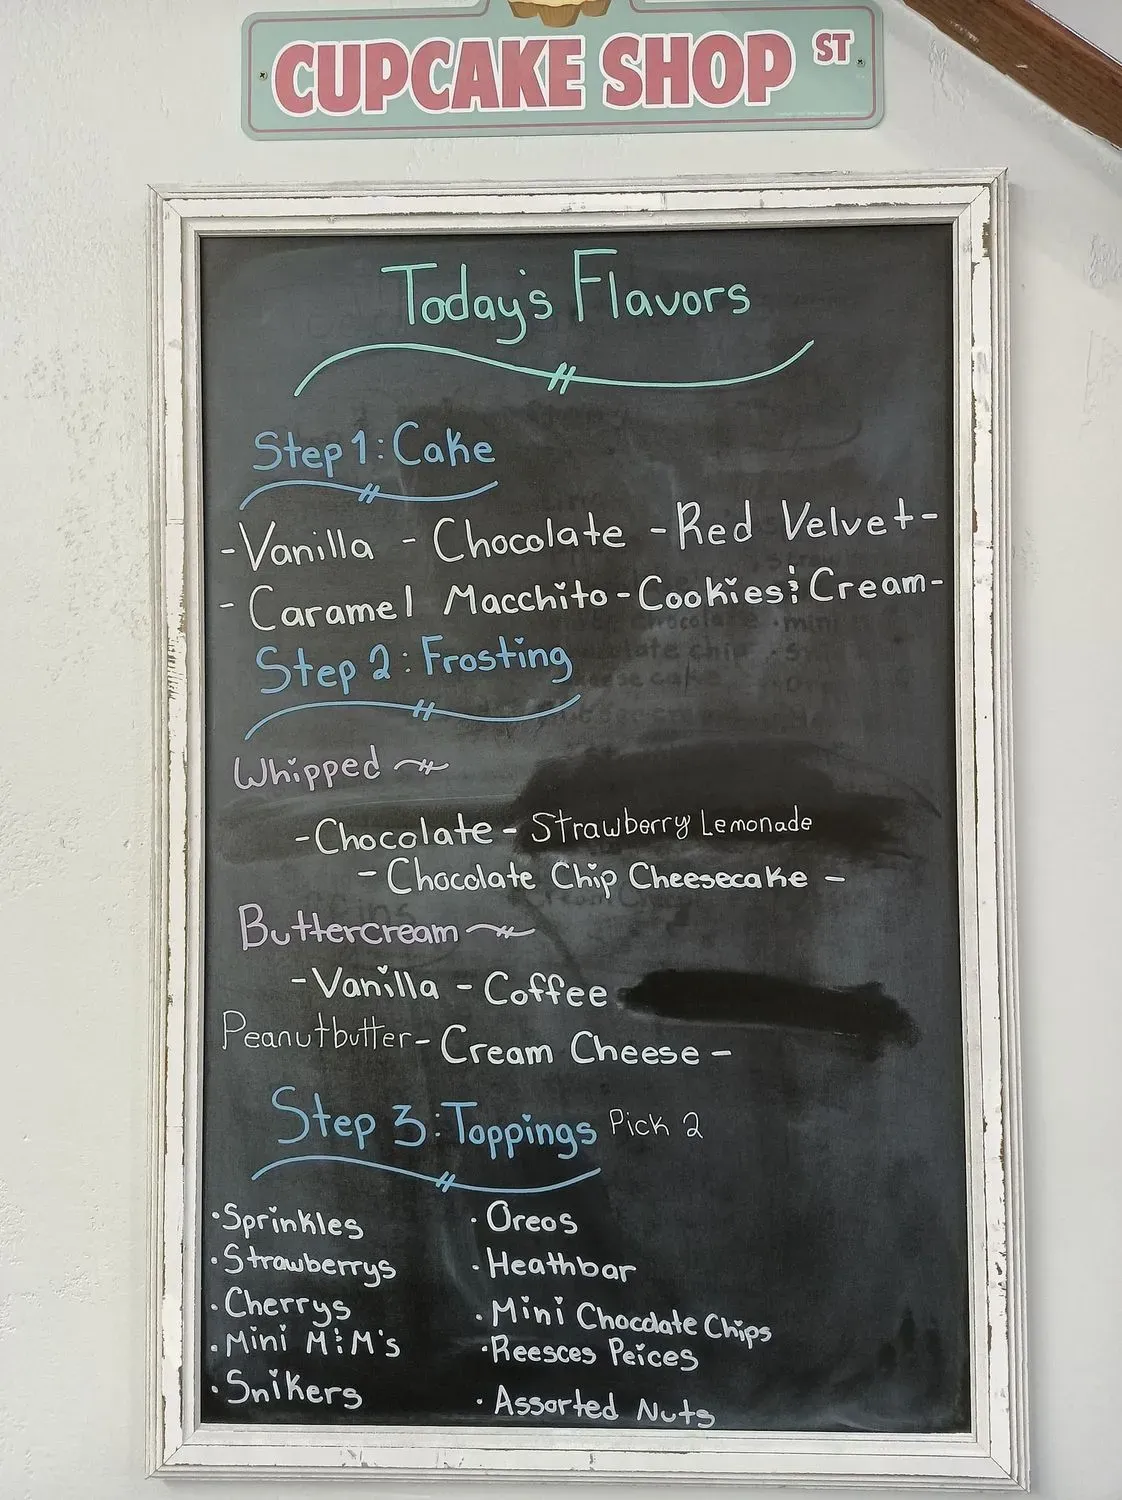 CUPCAKE SHOP ST
Today's Flavors
Step 1: Cake
-Vanilla - Chocolate -Red Velvet-
- Caramel Macchito - Cookies & Cream-
Step 2: Frosting
Whipped
-Chocolate - Strawberry Lemonade
- Chocolate Chip Cheesecake -
Buttercream
-Vanilla - Coffee
Peanutbutter - Cream Cheese -
Step 3: Toppings Pick 2
·Sprinkles · Oreos
·Strawberrys · Heathbar
·Cherrys · Mini Chocolate Chips
·Mini M&M's ·Reesces Peices
·Snikers · Assorted Nuts